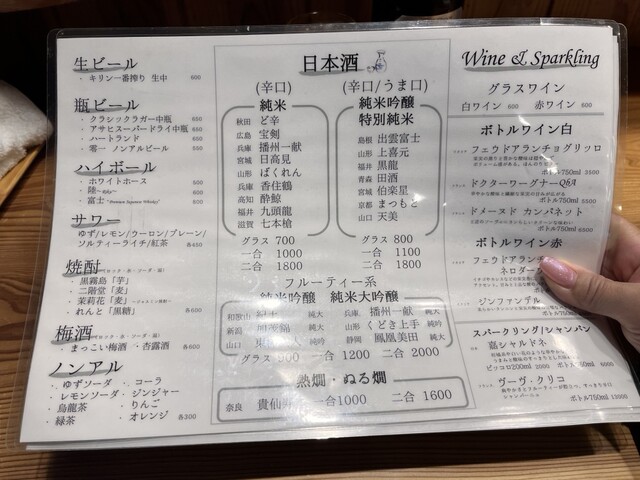 生ビール
・キリン一番搾り 生中 600
瓶ビール
・クラシックラガー中瓶 650
・アサヒスーパードライ中瓶 650
・ハートランド 650
・零一 ノンアルビール 600
ハイボール
・ホワイトホース 600
・陸 600
・富士 "Premium Japanese Whisky" 900
サワー
ゆず/レモン/ウーロン/プレーン/
ソルティーライチ/紅茶 各450
焼酎 (ロック・水・ソーダ・湯)
・黒霧島「芋」
・二階堂「麦」
・茉莉花「麦」
・れんと「黒糖」 各600
梅酒 (ロック・水・ソーダ・湯)
・まっこい梅酒 ・杏露酒 各600
ノンアル
・ゆずソーダ ・コーラ
・レモンソーダ ・ジンジャー
・烏龍茶 ・りんご
・緑茶 ・オレンジ 各300
日本酒
(辛口)
純米
秋田 ど辛
広島 宝剣
兵庫 播州一献
宮城 日高見
山形 ばくれん
兵庫 香住鶴
高知 酔鯨
福井 九頭龍
滋賀 七本槍
グラス 700
一合 1000
二合 1800
(辛口/うま口)
純米吟醸
特別純米
島根 出雲富士
山形 上喜元
福井 黒龍
青森 田酒
宮城 伯楽星
京都 まつもと
山口 天美
グラス 800
一合 1100
二合 1800
フルーティー系
純米吟醸 純米大吟醸
和歌山 純大 兵庫 播州一献 純大
新潟 純大 山形 くどき上手 純吟
山口 純大 静岡 鳳凰美田 純大
グラス 900 一合 1200 二合 2000
熱燗・ぬる燗
奈良 貴仙 一合1000 二合 1600
Wine & Sparkling
グラスワイン
白ワイン 600 赤ワイン 600
ボトルワイン白
フェウドアランチョグリッロ
ボトル750ml 3500
ドクターワーグナーQ&A
ボトル750ml 5500
ドメーヌド カンパネット
ボトル750ml 6500
ボトルワイン赤
フェウドアランチ
ネロダー
ジンファンデル
スパークリング/シャンパン
嘉シャルドネ
ピッコロ200ml 2000 ボトル750ml 6000
ヴーヴ・クリコ
ボトル750ml 13000